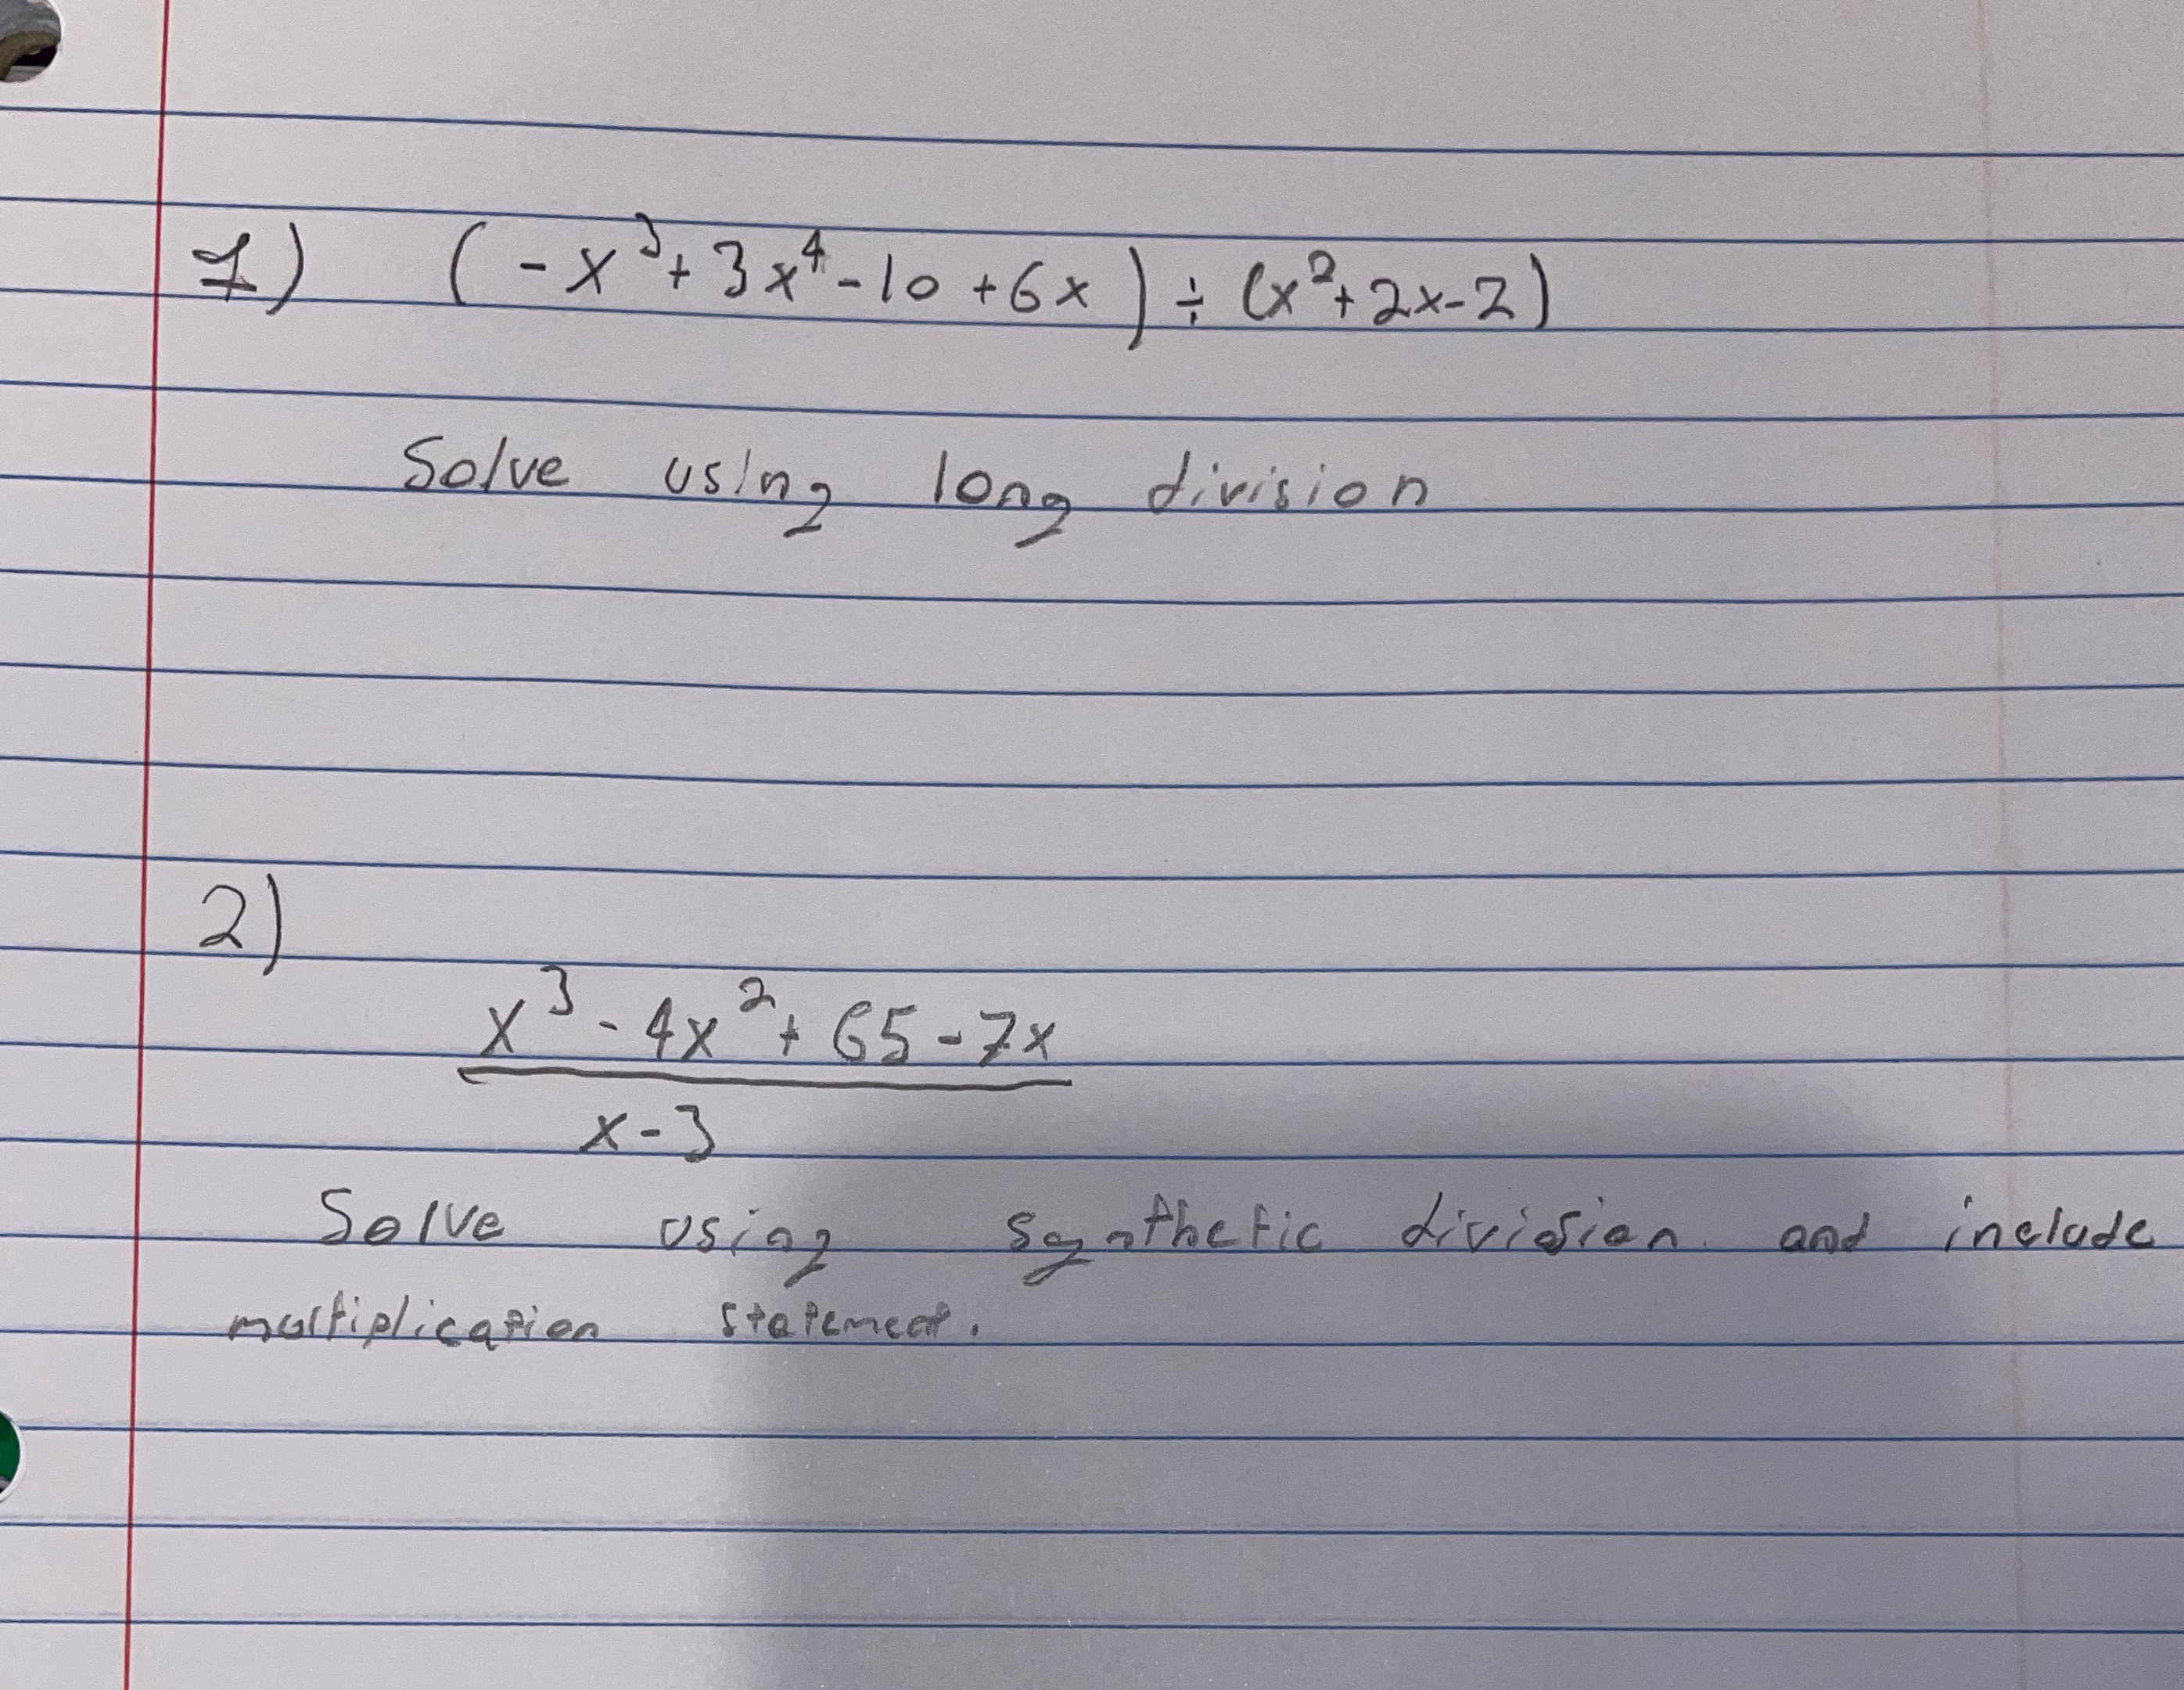 1) (-x³+3x⁴-10+6x) ÷ (x²+2x-2)
Solve using long division
2)
x³-4x²+65-7x
x-3
Solve using synthetic division. and include
multiplication statement.